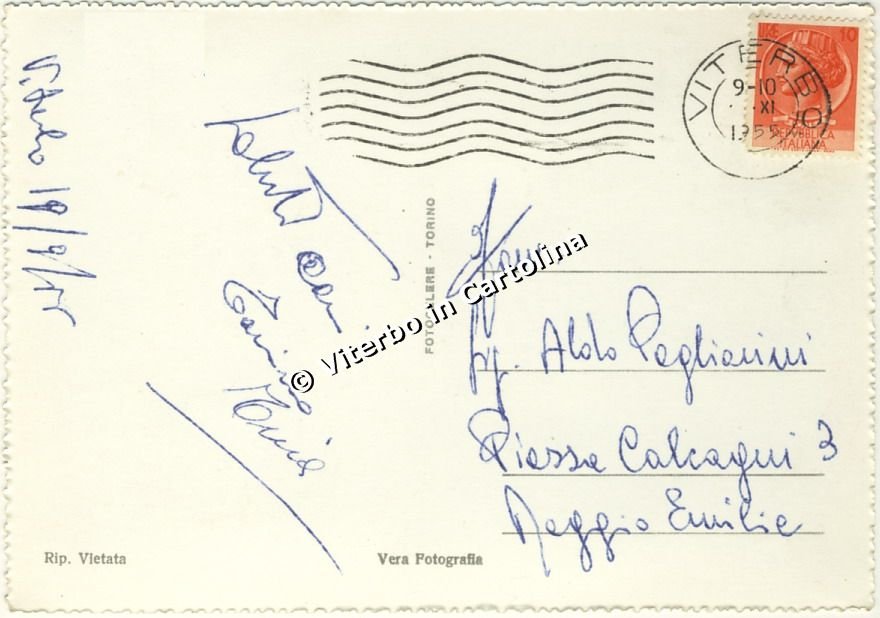 Viterbo 19/9/55
Saluti cari
VITERBO
9-10
XI
1955
LIRE 10
REPVBBLICA
ITALIANA
FOTOCELERE - TORINO
© Viterbo in Cartolina
Sig. Aldo Pagliarini
Piazza Calcagni 3
Reggio Emilia
Rip. Vietata
Vera Fotografia